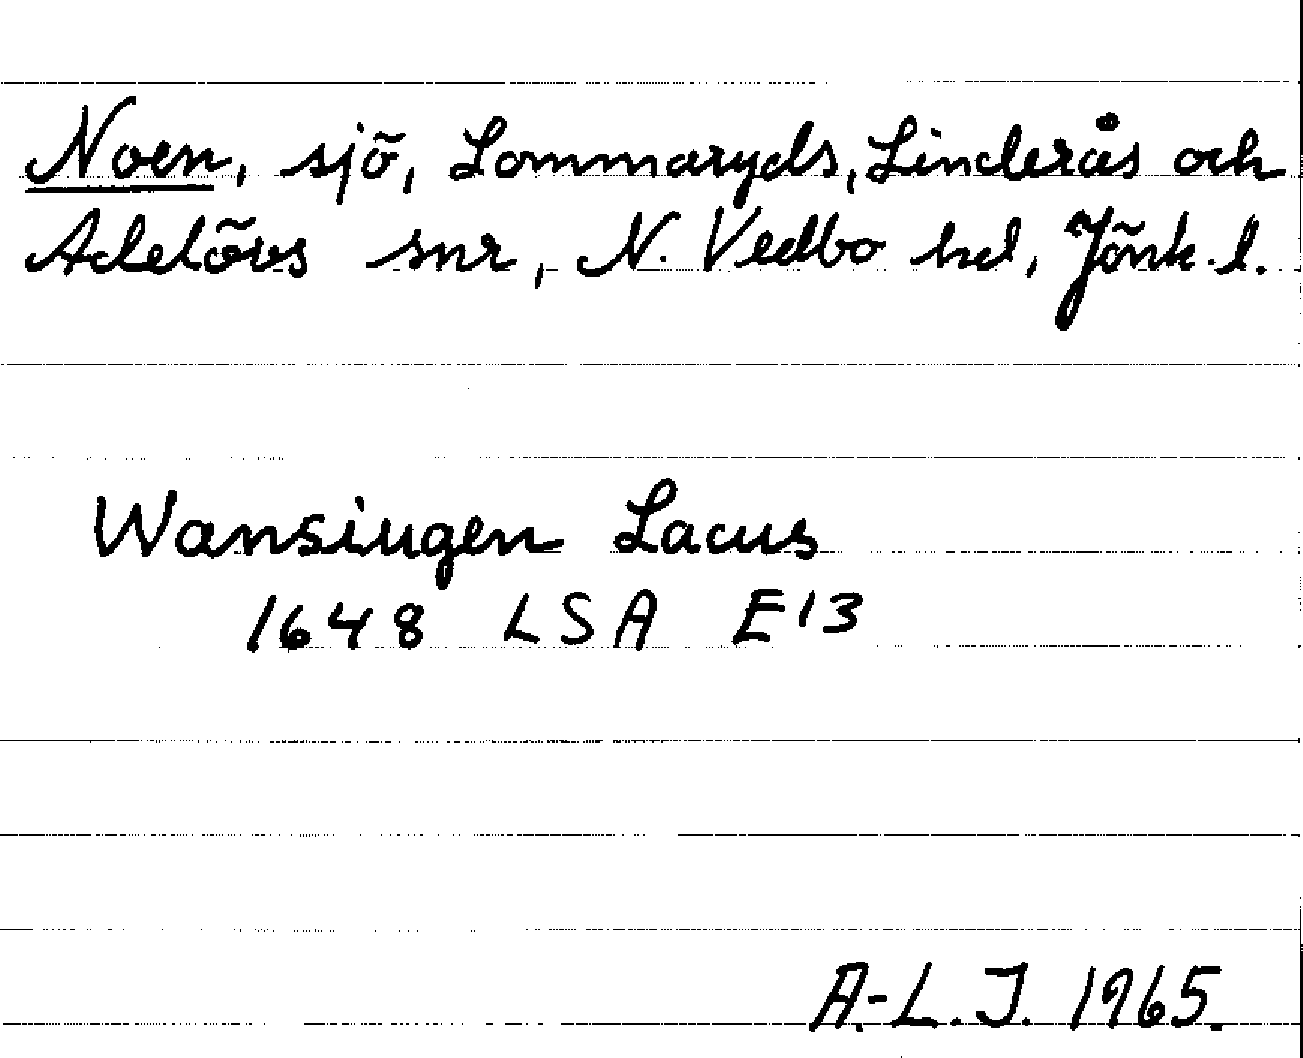 Noen, sjö, Lommaryds, Linderås och
Adelövs snr, N. Vedbo hd, Jönk. l.
Wansiugen Lacus
1648 LSA E13
A.-L. J. 1965.